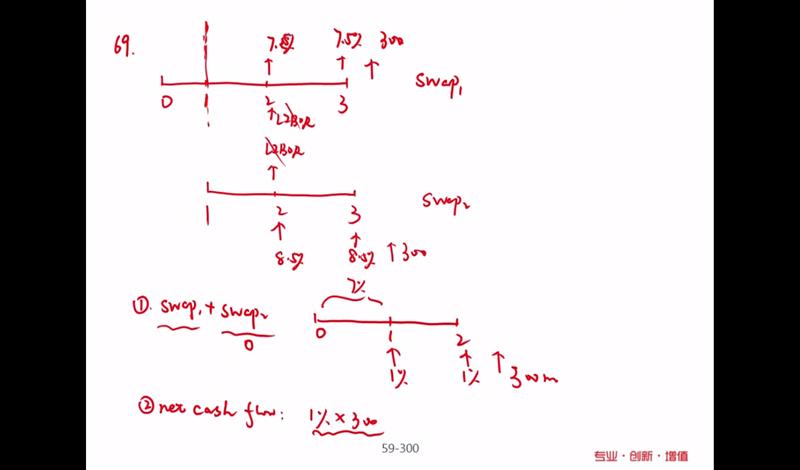 69.
7.5% 7.5% 300
0 1 2 3 swap1
LIBOR
LIBOR
1 2 3 swap2
8.5% 8.5% 300
7%
① swap1 + swap2
0
0 1 2
1% 1% 300m
② net cash flow: 1% × 300
59-300
专业·创新·增值